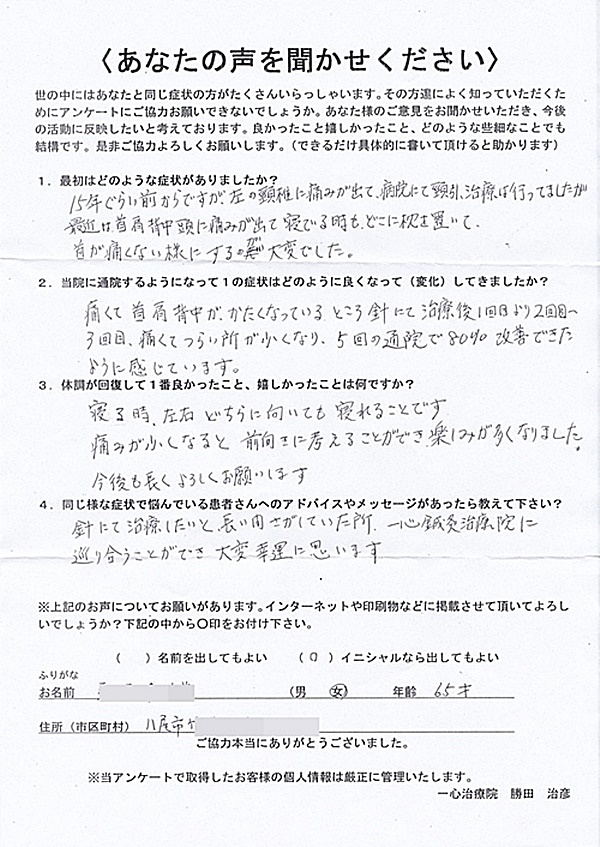 〈あなたの声を聞かせください〉
世の中にはあなたと同じ症状の方がたくさんいらっしゃいます。その方達によく知っていただくた
めにアンケートにご協力お願いできないでしょうか。あなた様のご意見をお聞かせいただき、今後
の活動に反映したいと考えております。良かったこと嬉しかったこと、どのような些細なことでも
結構です。是非ご協力よろしくお願いします。（できるだけ具体的に書いて頂けると助かります）
１．最初はどのような症状がありましたか？
15年ぐらい前からですが左の頸椎に痛みが出て、病院にて頸引、治療は行ってましたが
最近は首肩背中頭に痛みが出て寝でる時も、どこに枕を置いて、
首が痛くない様にするの 大変でした。
２．当院に通院するようになって１の症状はどのように良くなって（変化）してきましたか？
痛くて首肩背中が、かたくなっているところ針にて治療後1回目より2回目へ
3回目、痛くてつらい所が小くなり、5回の通院で80%改善できた
ように感じています。
３．体調が回復して１番良かったこと、嬉しかったことは何ですか？
寝る時、左右どちらに向いても寝れることです
痛みが小くなると前向きに考えることができ、楽しみが多くなりました。
今後も長くよろしくお願いします
４．同じ様な症状で悩んでいる患者さんへのアドバイスやメッセージがあったら教えて下さい？
針にて治療したいと、長い間さがしていた所、一心鍼灸治療院に
巡り合うことができ大変幸運に思います
※上記のお声についてお願いがあります。インターネットや印刷物などに掲載させて頂いてよろし
いでしょうか？下記の中から○印をお付け下さい。
（　）名前を出してもよい　（○）イニシャルなら出してもよい
ふりがな
お名前　（男　女）　年齢　65才
住所（市区町村）八尾市
ご協力本当にありがとうございました。
※当アンケートで取得したお客様の個人情報は厳正に管理いたします。
一心治療院　勝田　治彦